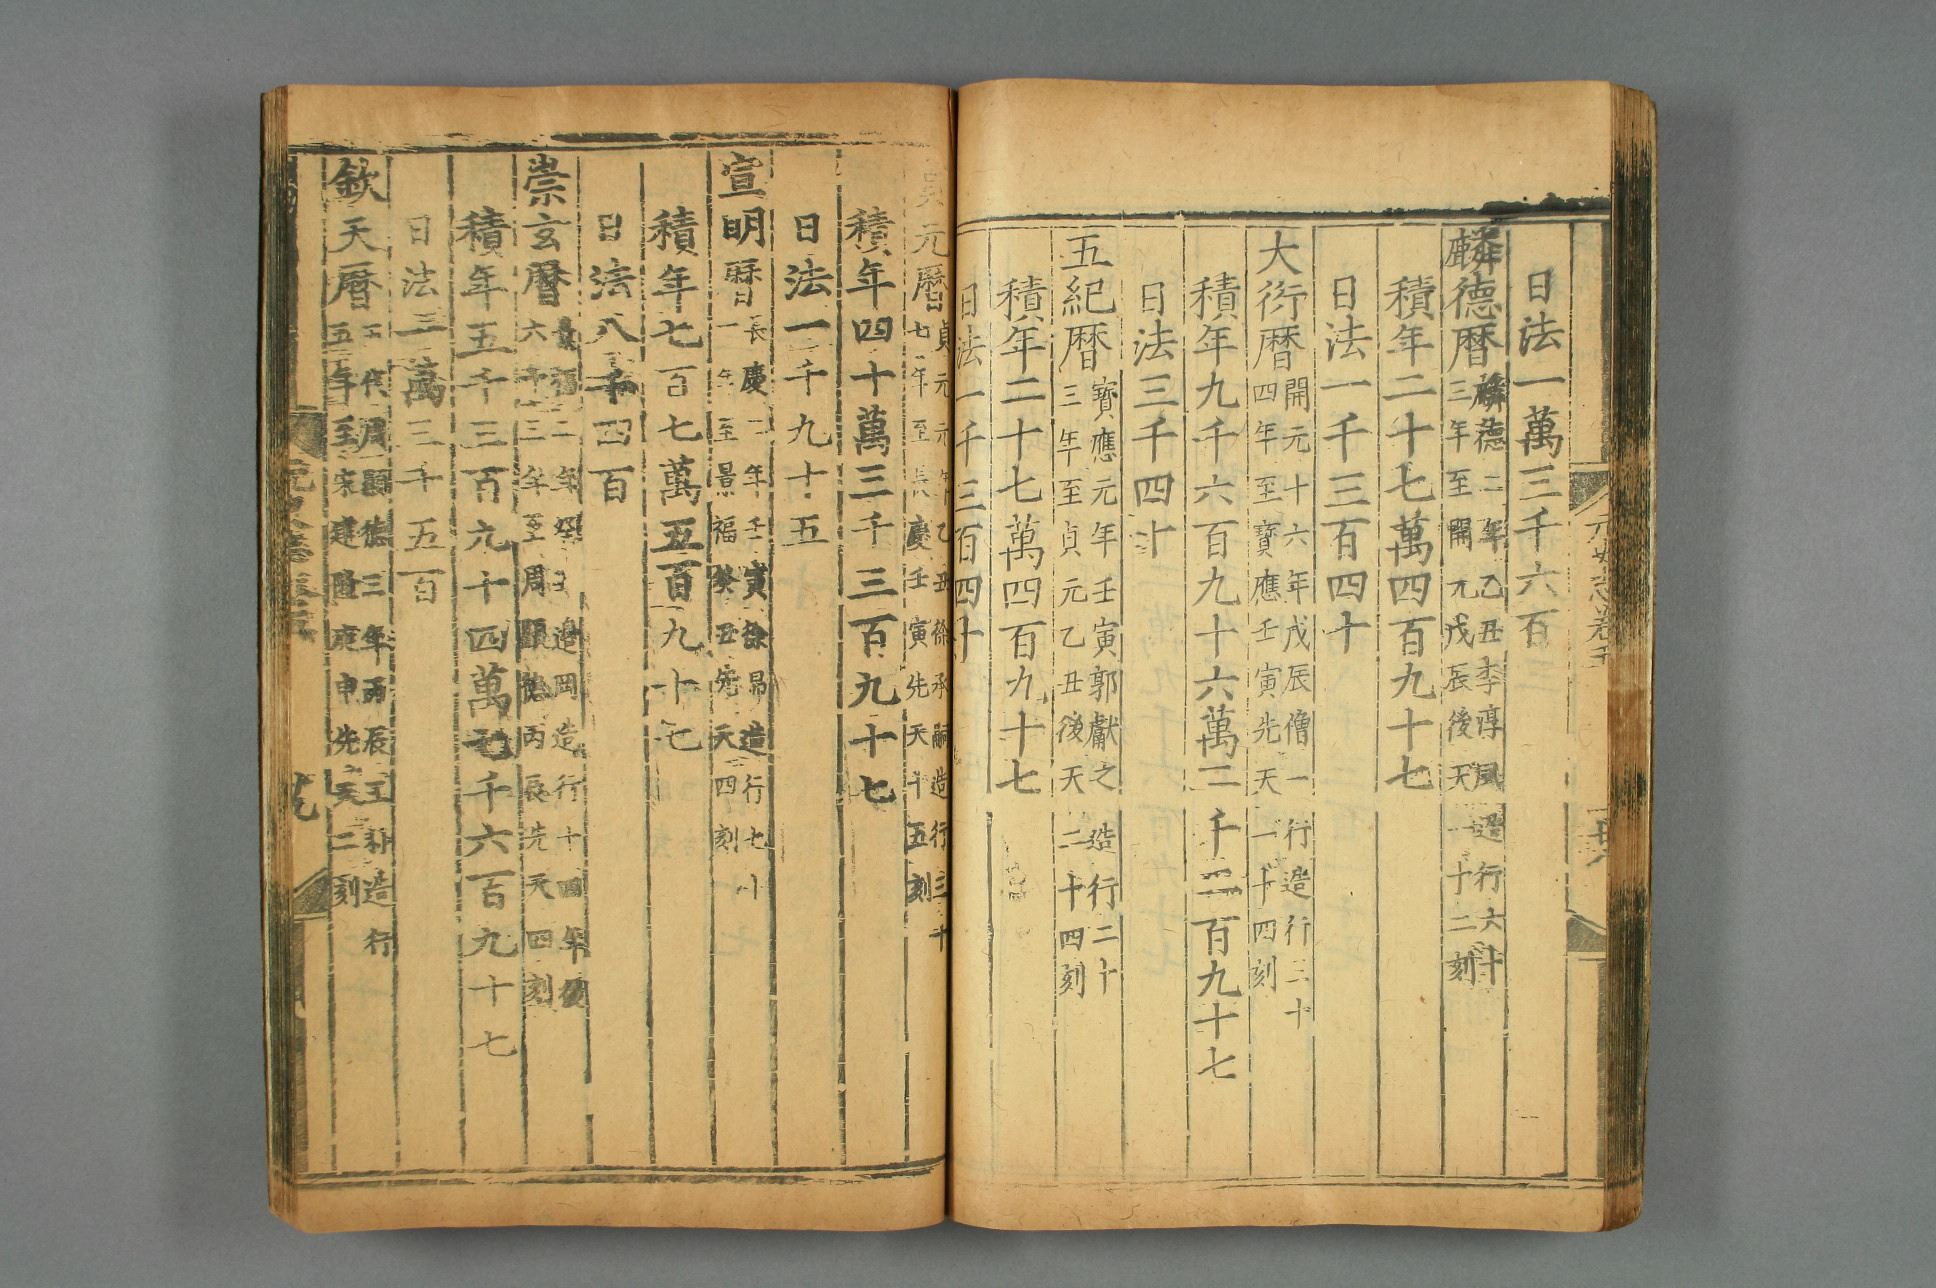 日法一萬三千六百
麟德暦麟德二年乙丑李淳風造行六十
三年至開元戊辰後天一十二刻
積年二十七萬四百九十七
日法一千三百四十
大衍暦開元十六年戊辰僧一行造行三十
四年至寶應壬寅先天一十四刻
積年九千六百九十六萬二千二百九十七
日法三千四十
五紀暦寶應元年壬寅郭獻之造行二十
三年至貞元乙丑後天二十四刻
積年二十七萬四百九十七
日法一千三百四十
元暦貞元元年乙丑徐承嗣造行三十
七年至長慶壬寅先天十五刻
積年四十萬三千三百九十七
日法一千九十五
宣明暦長慶二年壬寅徐昴造行七十
一年至景福癸丑先天四刻
積年七百七萬五百九十七
日法八千四百
崇玄暦景福二年癸丑邊岡造行十四年後
六十三年至周顯德丙辰先天四刻
積年五千三百九十四萬七千六百九十七
日法一萬三千五百
欽天暦五代周顯德三年丙辰王朴造行
五年至宋建隆庚申先天二刻